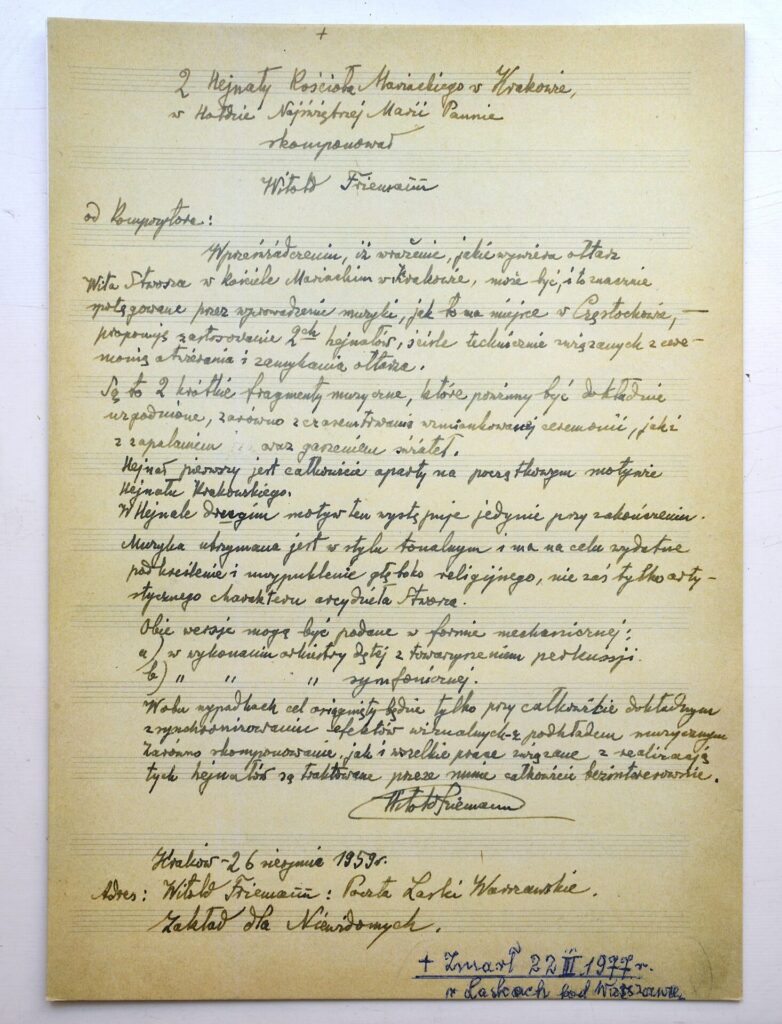 +
2 Hejnały Kościoła Mariackiego w Krakowie,
w Hołdzie Najświętszej Marii Pannie
skomponował
Witold Friemann
od kompozytora:
iż wrażenie, jakie wywiera ołtarz
Wita Stwosza w kościele Mariackim w Krakowie, może być, i to znacznie
spotęgowane przez wprowadzenie muzyki, jak to ma miejsce w Częstochowie, —
proponuję zastosowanie 2ch hejnałów, ściśle technicznie związanych z cere-
monią otwierania i zamykania ołtarza.
Są to 2 krótkie fragmenty muzyczne, które powinny być dokładnie
uzgodnione, zarówno z czasem trwania wzmiankowanej ceremonii, jak i
z zapalaniem oraz gaszeniem świateł.
Hejnał pierwszy jest całkowicie oparty na początkowym motywie
Hejnału Krakowskiego.
W Hejnale drugim motyw ten występuje jedynie przy zakończeniu.
Muzyka utrzymana jest w stylu tonalnym i ma na celu wydatne
podkreślenie i uwypuklenie głęboko religijnego, nie zaś tylko arty-
stycznego charakteru arcydzieła Stwosza.
Obie wersje mogą być podane w formie mechanicznej:
a) w wykonaniu orkiestry dętej z towarzyszeniem perkussji.
b) " " " symfonicznej.
W obu wypadkach cel osiągnięty będzie tylko przy całkowicie dokładnym
zsynchronizowaniu efektów wizualnych z podkładem muzycznym
Zarówno skomponowanie, jak i wszelkie prace związane z realizacją
tych hejnałów są traktowane przeze mnie całkowicie bezinteresownie.
Witold Friemann
Kraków - 26 sierpnia 1959 r.
Adres: Witold Friemann: Poczta Laski Warszawskie.
Zakład dla Niewidomych.
+ Zmarł 22 III 1977 r.
w Laskach pod Warszawą